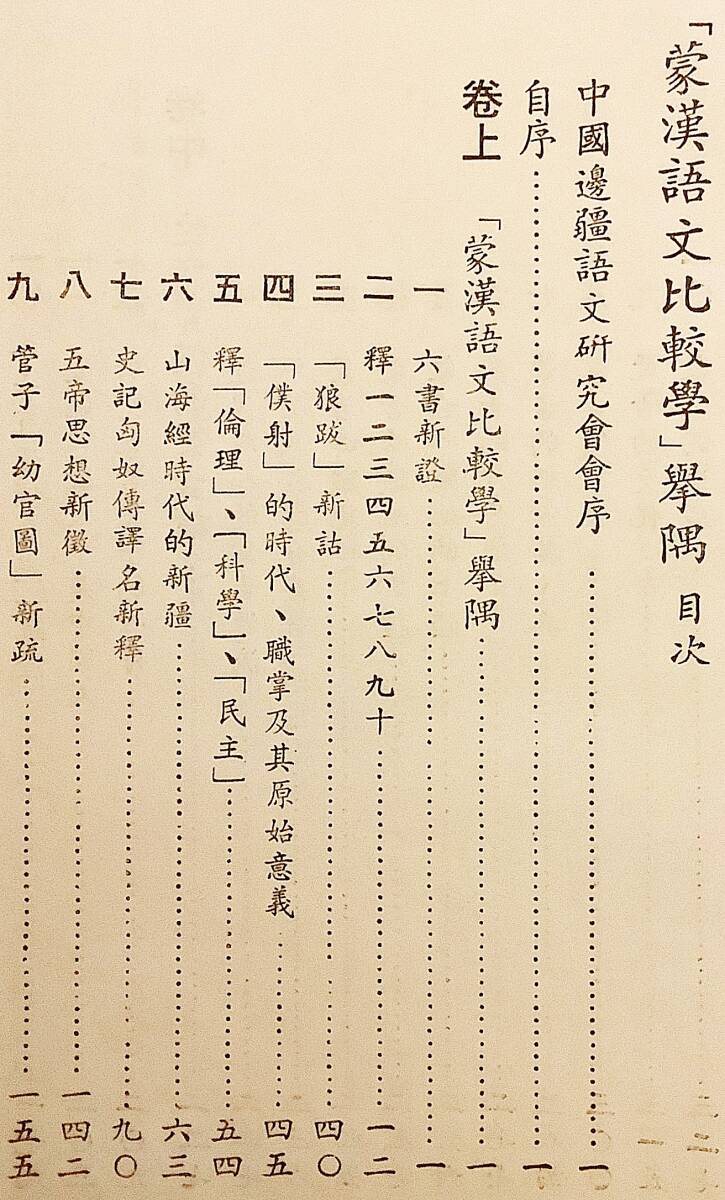 「蒙漢語文比較學」舉隅 目次
中國邊疆語文研究會會序……一
自序……一
卷上 「蒙漢語文比較學」舉隅……一
一 六書新證……一
二 釋一二三四五六七八九十……一二
三 「狼跋」新詁……四〇
四 「僕射」的時代、職掌及其原始意義……四五
五 釋「倫理」、「科學」、「民主」……五四
六 山海經時代的新疆……六三
七 史記匈奴傳譯名新釋……九〇
八 五帝思想新徵……一四二
九 管子「幼官圖」新疏……一五五